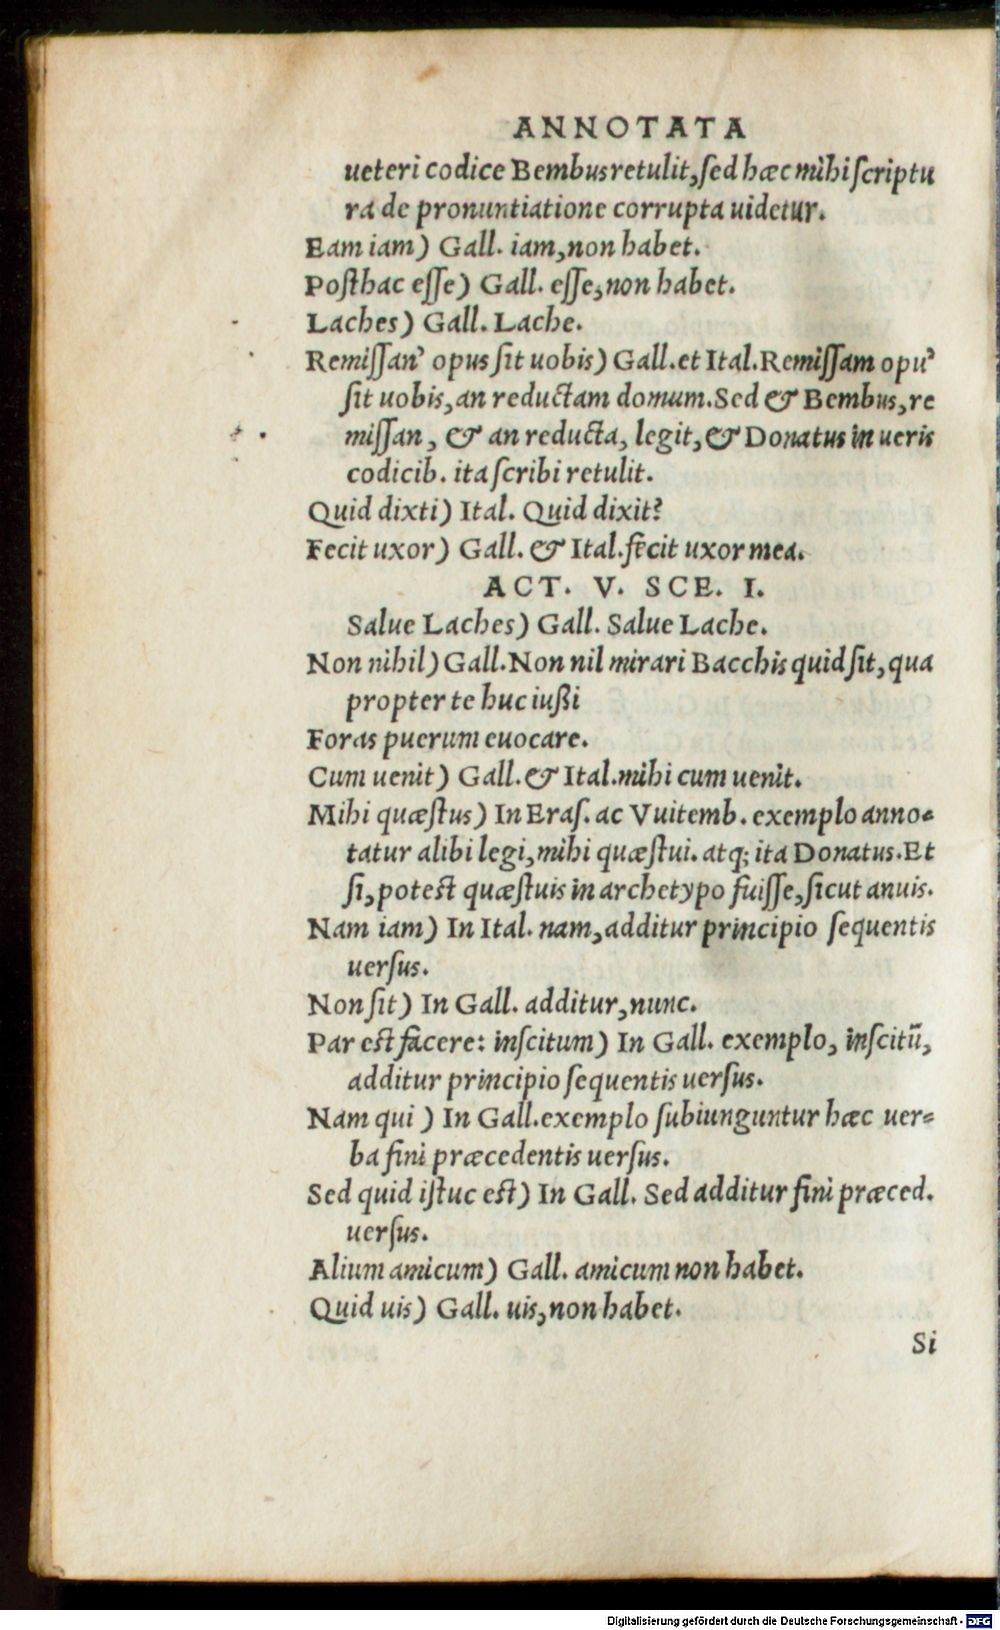 ANNOTATA
ueteri codice Bembus retulit, ſed hæc mihi ſcriptu
ra de pronuntiatione corrupta uidetur.
Eam iam) Gall. iam, non habet.
Poſthac eſſe) Gall. eſſe, non habet.
Laches) Gall. Lache.
Remiſſan' opus ſit uobis) Gall. et Ital. Remiſſam opu'
ſit uobis, an reductam domum. Sed & Bembus, re
miſſan, & an reducta, legit, & Donatus in ueris
codicib. ita ſcribi retulit.
Quid dixti) Ital. Quid dixit?
Fecit uxor) Gall. & Ital. fecit uxor mea.
ACT. V. SCE. I.
Salue Laches) Gall. Salue Lache.
Non nihil) Gall. Non nil mirari Bacchis quid ſit, qua
propter te huc iußi
Foras puerum euocare.
Cum uenit) Gall. & Ital. mihi cum uenit.
Mihi quæſtus) In Eraſ. ac Vuitemb. exemplo anno-
tatur alibi legi, mihi quæſtui. atq; ita Donatus. Et
ſi, potest quæſtuis in archetypo fuiſſe, ſicut anuis.
Nam iam) In Ital. nam, additur principio ſequentis
uerſus.
Non ſit) In Gall. additur, nunc.
Par est facere: inſcitum) In Gall. exemplo, inſcitū,
additur principio ſequentis uerſus.
Nam qui ) In Gall. exemplo ſubiunguntur hæc uer-
ba fini præcedentis uerſus.
Sed quid iſtuc est) In Gall. Sed additur fini præced.
uerſus.
Alium amicum) Gall. amicum non habet.
Quid uis) Gall. uis, non habet.
Si
Digitalisierung gefördert durch die Deutsche Forschungsgemeinschaft - DFG